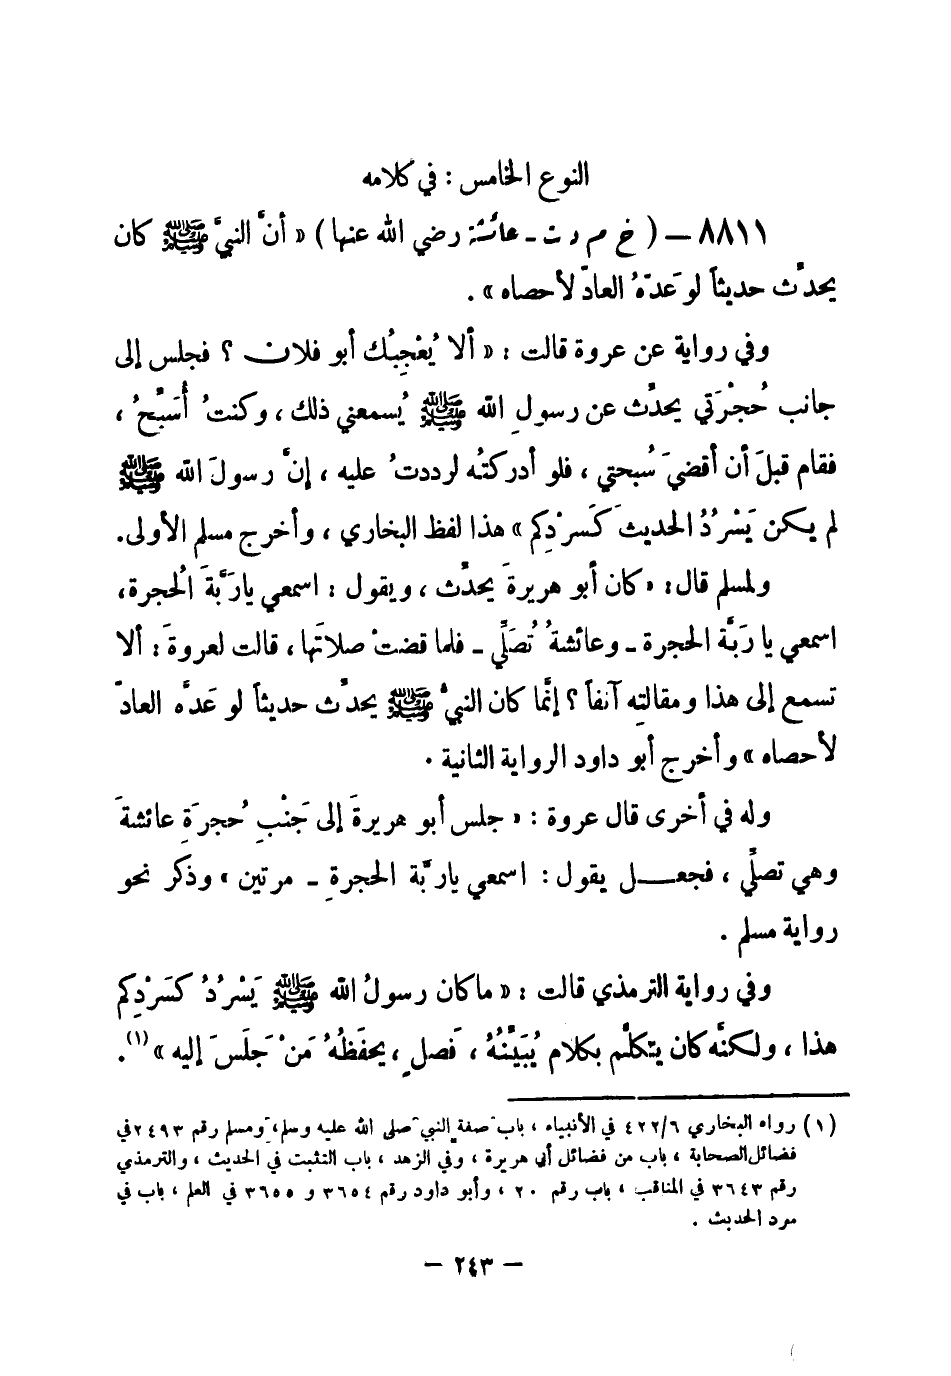 النوع الخامس : في كلامه
٨٨١١ – ( خ م د ت - عائشة رضي الله عنها ) « أنَّ النبيَّ ﷺ كان
يحدِّث حديثاً لو عَدّهُ العادّ لأحصاه » .
وفي رواية عن عروة قالت : « ألا يُعْجِبُك أبو فلان ؟ فجلس إلى
جانب حُجْرَتي يحدِّث عن رسولِ الله ﷺ يُسمعني ذلك ، وكنتُ أُسَبِّحُ ،
فقام قبلَ أن أقضيَ سُبحتي ، فلو أدركتُه لرددتُ عليه ، إنَّ رسولَ الله ﷺ
لم يكن يَسْرُدُ الحديثَ كَسردِكم » هذا لفظ البخاري ، وأخرج مسلم الأولى.
ولمسلم قال: « كان أبو هريرةَ يحدِّث ، ويقول : اسمعي ياربَّةَ الحُجرة،
اسمعي يا رَبَّة الحجرة - وعائشةُ تُصَلِّي - فلما قضتْ صلاتَها، قالت لعروةَ : ألا
تسمع إلى هذا ومقالتِه آنفاً ؟ إنَّما كان النبيُّ ﷺ يحدِّث حديثاً لو عَدَّه العادّ
لأحصاه » وأخرج أبو داود الرواية الثانية .
وله في أخرى قال عروة : « جلس أبو هريرةَ إلى جَنْبِ حُجرَةِ عائشةَ
وهي تصلِّي ، فجعل يقول : اسمعي ياربَّة الحجرةِ - مرتين » وذكر نحو
رواية مسلم .
وفي رواية الترمذي قالت : « ماكان رسولُ الله ﷺ يَسْرُدُ كسَرْدِكم
هذا ، ولكنَّه كان يتكلَّم بكلام يُبَيِّنُهُ ، فَصلٍ ، يحفَظُهُ مَنْ جَلَسَ إليه »(١).
(١) رواه البخاري ٤٢٢/٦ في الأنبياء ، باب صفة النبي صلى الله عليه وسلم، ومسلم رقم ٢٤٩٣ في
فضائل الصحابة ، باب من فضائل أبي هريرة ، وفي الزهد ، باب التثبت في الحديث ، والترمذي
رقم ٣٦٤٣ في المناقب ، باب رقم ٢٠ ، وأبو داود رقم ٣٦٥٤ و ٣٦٥٥ في العلم ، باب في
سرد الحديث .
– ٢٤٣ –